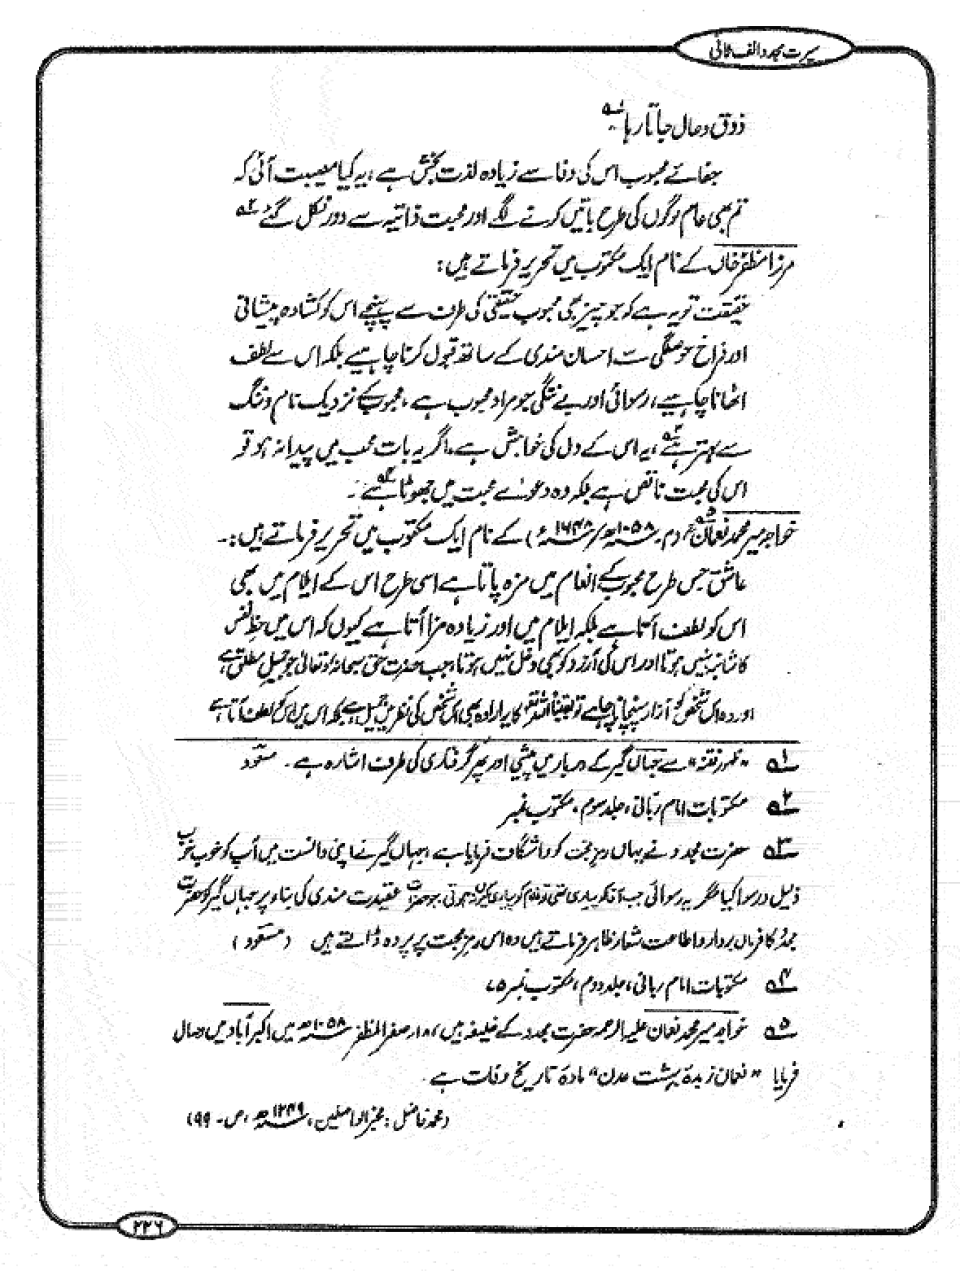 سیرت مجدد الف ثانی
ذوق و حال جاتا رہا ۱ے
جفائے محبوب اس کی وفا سے زیادہ لذت بخش ہے، یہ کیا مصیبت آئی کہ
تم بھی عام لوگوں کی طرح باتیں کرنے لگے اور محبت ذاتیہ سے دور نکل گئے ۲ے
مرزا مظفر خاں کے نام ایک مکتوب میں تحریر فرماتے ہیں :
حقیقت تو یہ ہے کہ جو چیز بھی محبوب حقیقی کی طرف سے پہنچے اس کو کشادہ پیشانی
اور فراخ حوصلگی سے احسان مندی کے ساتھ قبول کرنا چاہیے بلکہ اس سے لطف
اٹھانا چاہیے، رسوائی اور بے ننگی جو مراد محبوب ہے، محبوب کے نزدیک نام و ننگ
سے بہتر ہے ۳ے، یہ اس کے دل کی خواہش ہے، اگر یہ بات محب میں پیدا نہ ہو تو
اس کی محبت ناقص ہے بلکہ وہ دعوے محبت میں جھوٹا ہے ۴ے۔
خواجہ میر محمد نعمان ۵ے (م، ۱۰۵۸ھ/۱۶۴۸ء) کے نام ایک مکتوب میں تحریر فرماتے ہیں :۔
عاشق جس طرح محبوب کے انعام میں مزہ پاتا ہے اسی طرح اس کے ایلام میں بھی
اس کو لطف آتا ہے بلکہ ایلام میں اور زیادہ مزا آتا ہے کیوں کہ اس میں حظِ نفس
کا شائبہ نہیں ہوتا اور اس کی آرزو کو بھی دخل نہیں ہوتا، جب حضرت حق سبحانہ و تعالیٰ جو جمیل مطلق ہے،
اور وہ اس شخص کو آزار پہنچانا چاہے تو یقیناً اللہ تعالیٰ کا یہ ارادہ بھی اس شخص کی نظر میں جمیل ہے بلکہ اس میں اس کو لطف آتا ہے
۱ے "ظہور فتنہ" سے جہاں گیر کے دربار میں پیشی اور پھر گرفتاری کی طرف اشارہ ہے ۔ مسعود
۲ے مکتوبات امام ربانی، جلد سوم، مکتوب نمبر
۳ے حضرت مجدد نے یہاں رمزِ محبت کو واشگاف فرمایا ہے، جہاں گیر نے اپنی دانست میں آپ کو خوب خوب
ذلیل و رسوا کیا مگر یہ رسوائی جب آقا کو پیاری تھی تو غلام کو پیاری کیوں نہ ہوتی، جو حضرات عقیدت مندی کی بناء پر جہاں گیر کو حضرت
مجدد کا فرماں بردار و اطاعت شعار ظاہر فرماتے ہیں وہ اس رمزِ محبت پر پردہ ڈالتے ہیں (مسعود)
۴ے مکتوبات امام ربانی، جلد دوم، مکتوب نمبر ۷۵
۵ے خواجہ میر محمد نعمان علیہ الرحمہ حضرت مجدد کے خلیفہ ہیں، ۱۸، صفر المظفر ۱۰۵۸ھ میں اکبر آباد میں وصال
فرمایا "نعمان زبدۂ بہشت عدن" مادۂ تاریخ وفات ہے۔
(محمد فاضل : مخبر الواصلین، ۱۲۴۹ھ، ص۔ ۹۹)
۲۲۶